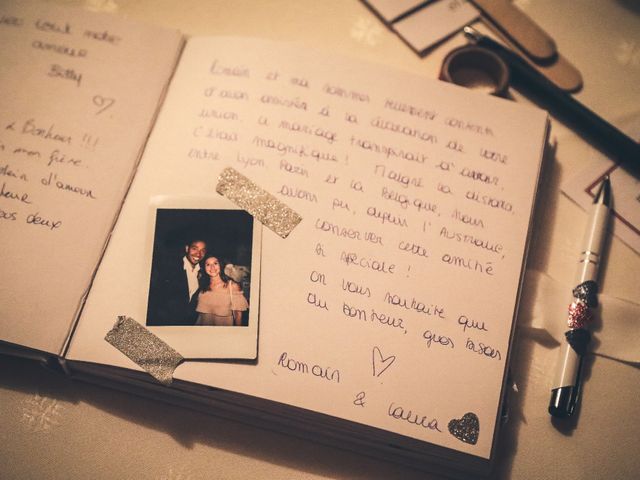 avec tout notre
amour
Billy
à Bonheur !!!
mon frère
plein d'amour
ous deux
Romain et ma sommes tellement contents
d'avoir assistés à la célébration de votre
union. Ce mariage transpirait l'amour,
C'était magnifique ! Malgré la distance,
entre Lyon, Paris et la Belgique, nous
avons pu, depuis l'Australie,
conserver cette amitié
si spéciale !
on vous souhaite que
du bonheur, gros bisous
Romain
& Laura